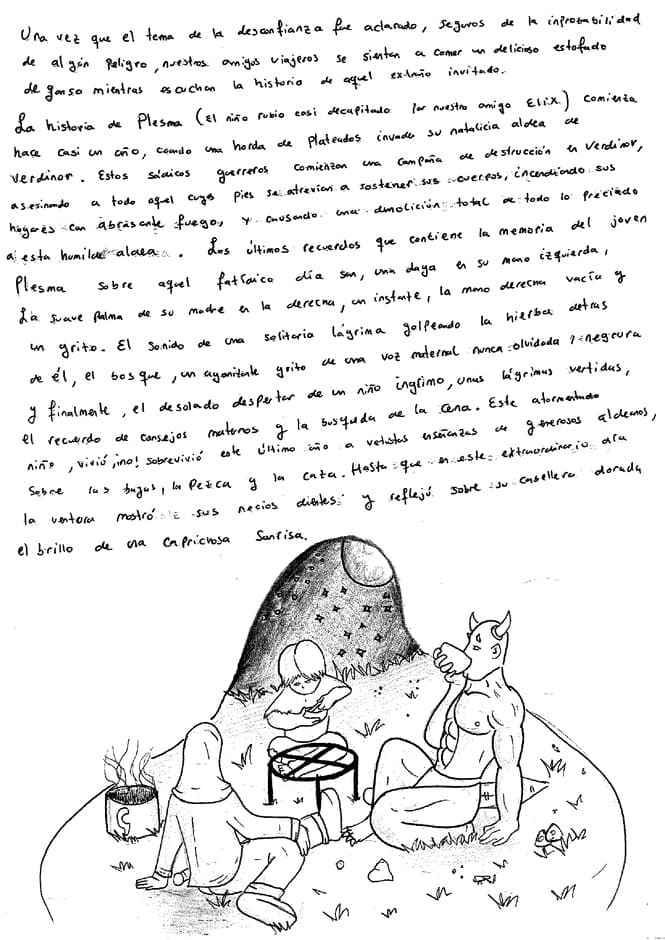 Una vez que el tema de la desconfianza fue aclarado, seguros de la inprobabilidad
de algún peligro, nuestros amigos viajeros se sientan a comer un delicioso estofado
de ganso mientras escuchan la historia de aquel extraño invitado.
La historia de Plesma (El niño rubio casi decapitado por nuestro amigo Elix.) comienza
hace casi un año, cuando una horda de Plateados invade su natalicia aldea de
Verdinor. Estos sádicos guerreros comienzan una campaña de destrucción en Verdinor,
asesinando a todo aquel cuyos pies se atrevían a sostener sus cuerpos, incendiando sus
hogares con abrasante fuego, y causando una demolición total de todo lo preciado
a esta humilde aldea. Los últimos recuerdos que contiene la memoria del joven
Plesma sobre aquel fatídico día son, una daga en su mano izquierda,
La suave palma de su madre en la derecha, un instante, la mano derecha vacía y
un grito. El sonido de una solitaria lágrima golpeando la hierba detras
de él, el bosque, un agonizante grito de una voz maternal nunca olvidada, negrura
y finalmente, el desolado despertar de un niño ingrimo, unas lágrimas vertidas,
el recuerdo de consejos maternos y la busqueda de la cena. Este atormentado
niño, vivió, ¡no! sobrevivió este último año a vetustas enseñanzas de generosos aldeanos,
Sobre las bayas, la pezca y la caza. Hasta que en este extraordinario día
la ventura mostró sus necios dientes y reflejó sobre su cabellera dorada
el brillo de una caprichosa sonrisa.